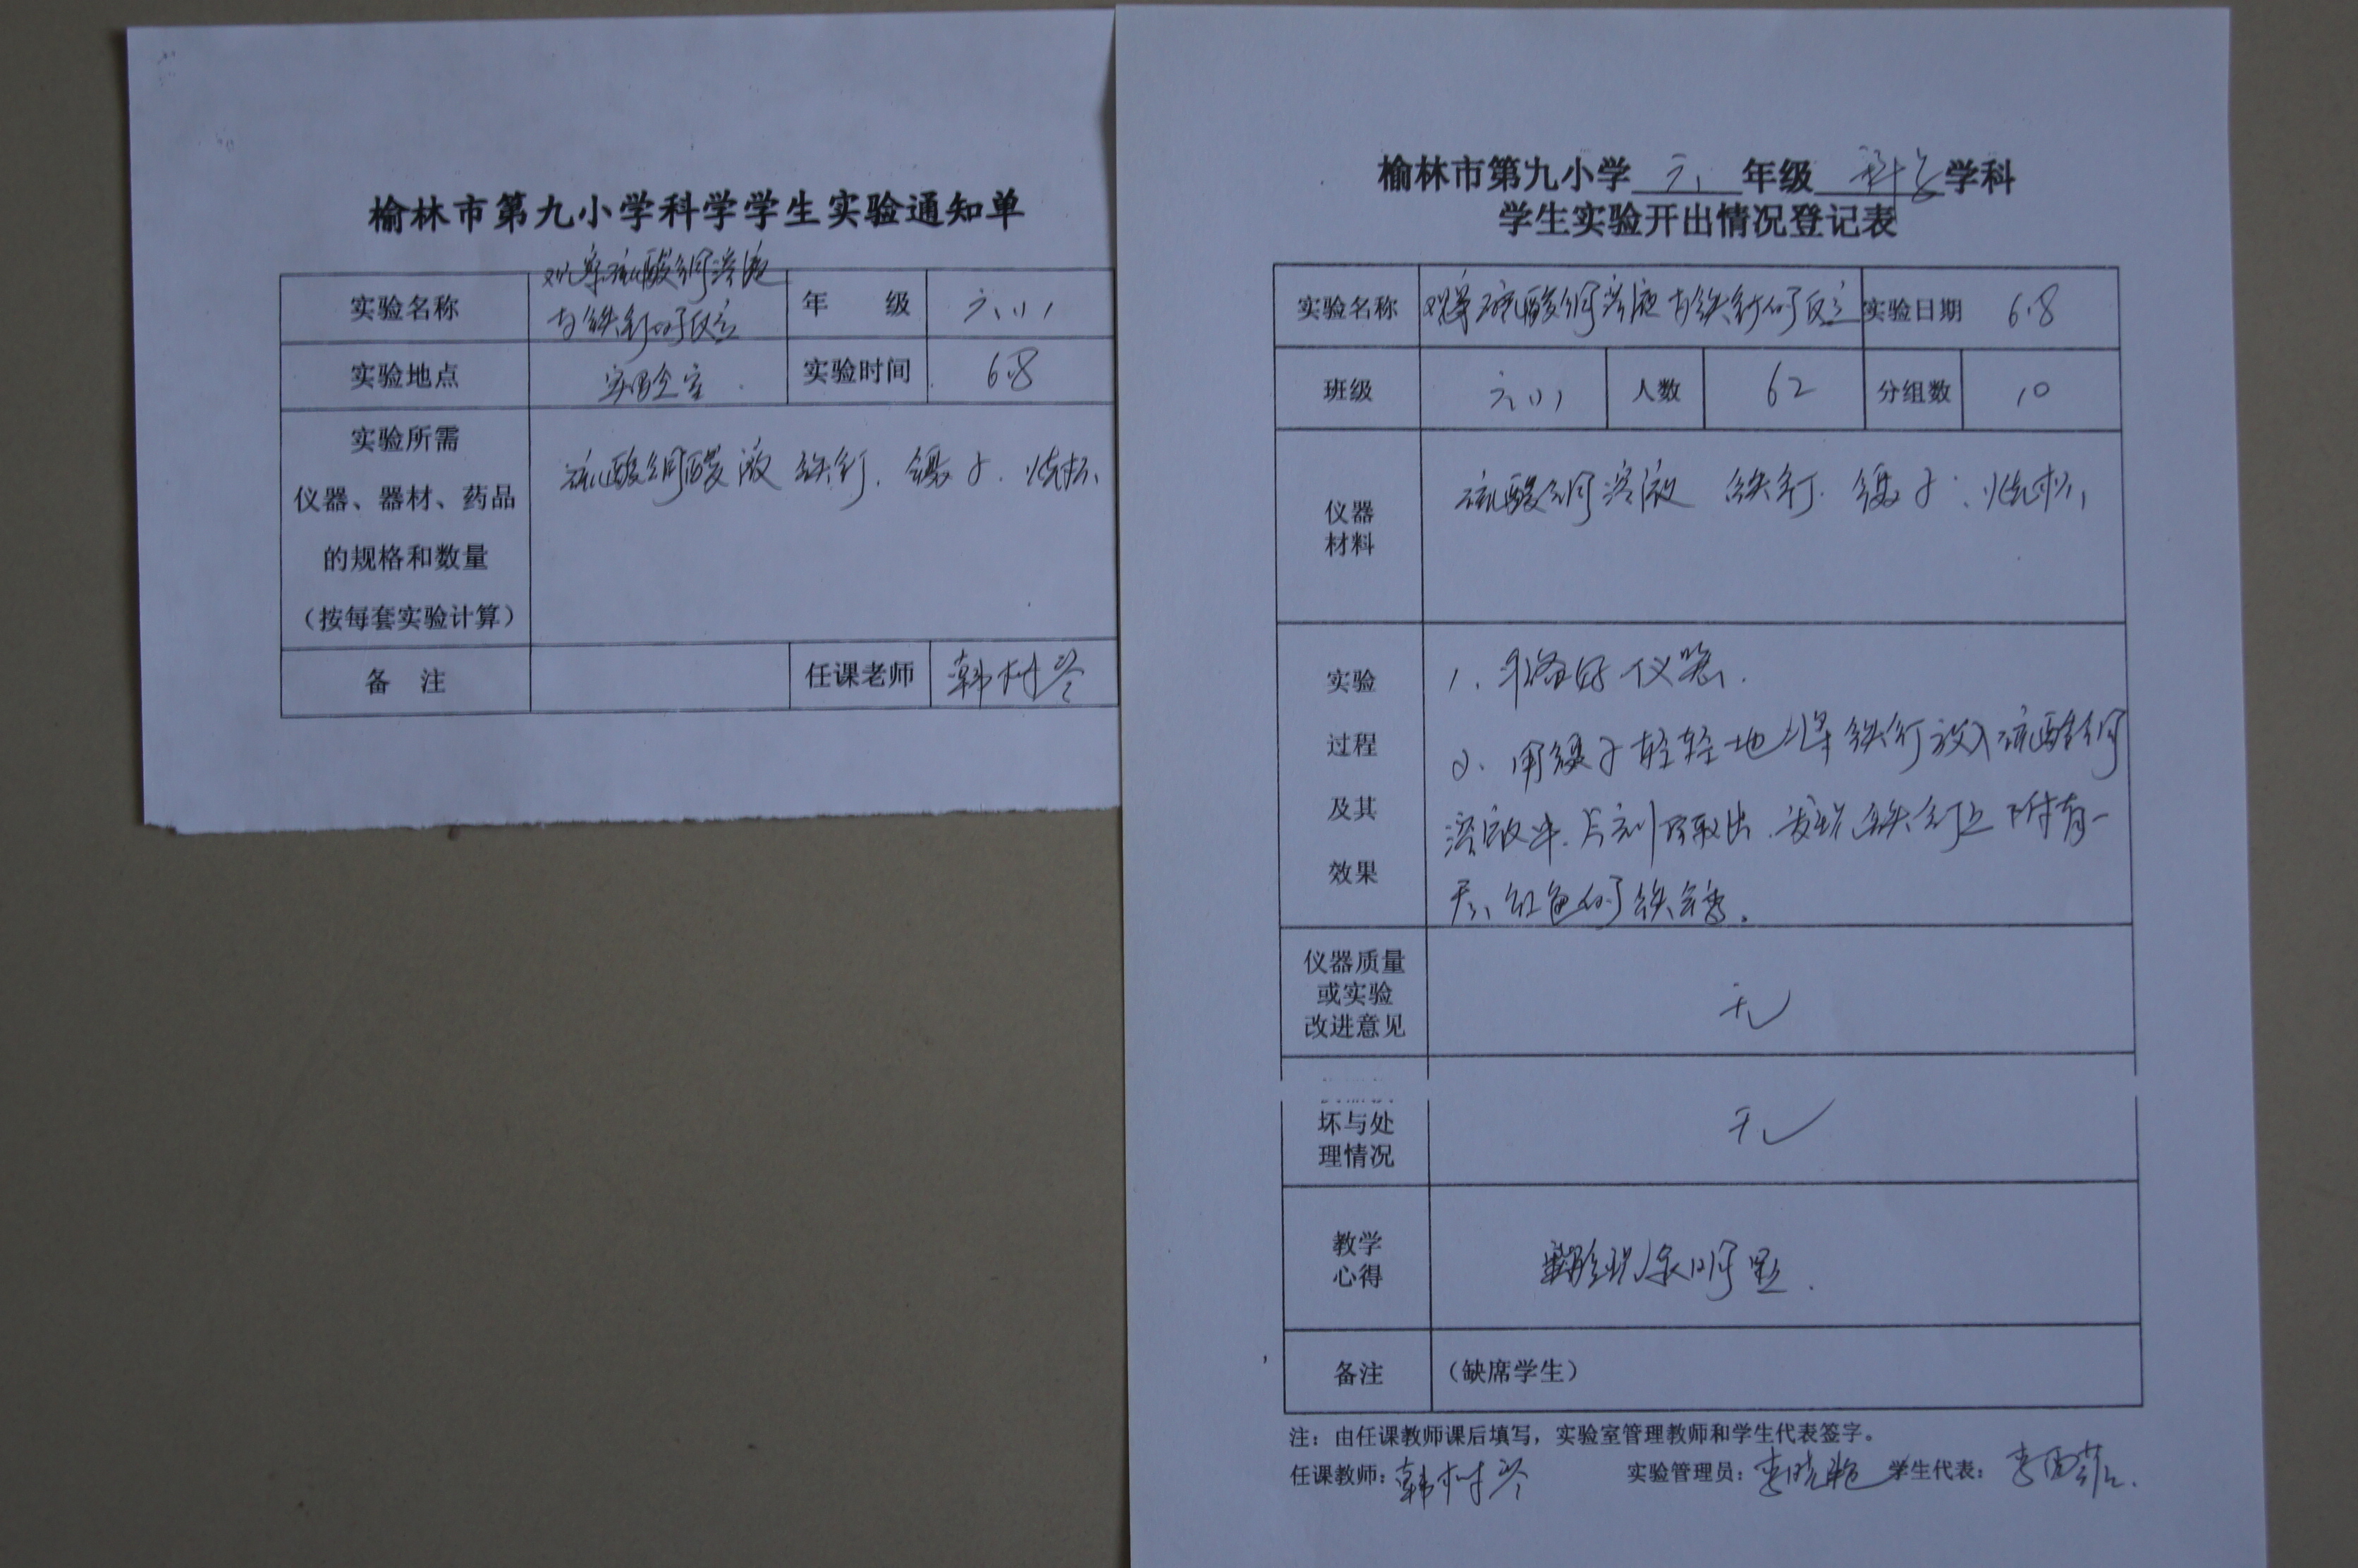 榆林市第九小学科学学生实验通知单
实验名称 观察硫酸铜溶液与铁钉的反应 年 级 六(1)
实验地点 实验室 实验时间 6.8
实验所需
仪器、器材、药品
的规格和数量
(按每套实验计算)
硫酸铜酸液 铁钉. 镊子. 烧杯.
备 注 任课老师
榆林市第九小学 六 年级 科学 学科
学生实验开出情况登记表
实验名称 观察硫酸铜溶液与铁钉的反应 实验日期 6.8
班级 六(1) 人数 62 分组数 10
仪器
材料
硫酸铜溶液 铁钉. 镊子. 烧杯.
实验
过程
及其
效果
1、准备好仪器.
2、用镊子轻轻地将铁钉放入硫酸铜
溶液中.片刻后取出.发现铁钉上附有一
层红色的铁锈.
仪器质量
或实验
改进意见
无
坏与处
理情况
无
教学
心得
实验现象明显.
备注 (缺席学生)
注：由任课教师课后填写，实验室管理教师和学生代表签字。
任课教师： 实验管理员：李晓艳 学生代表：